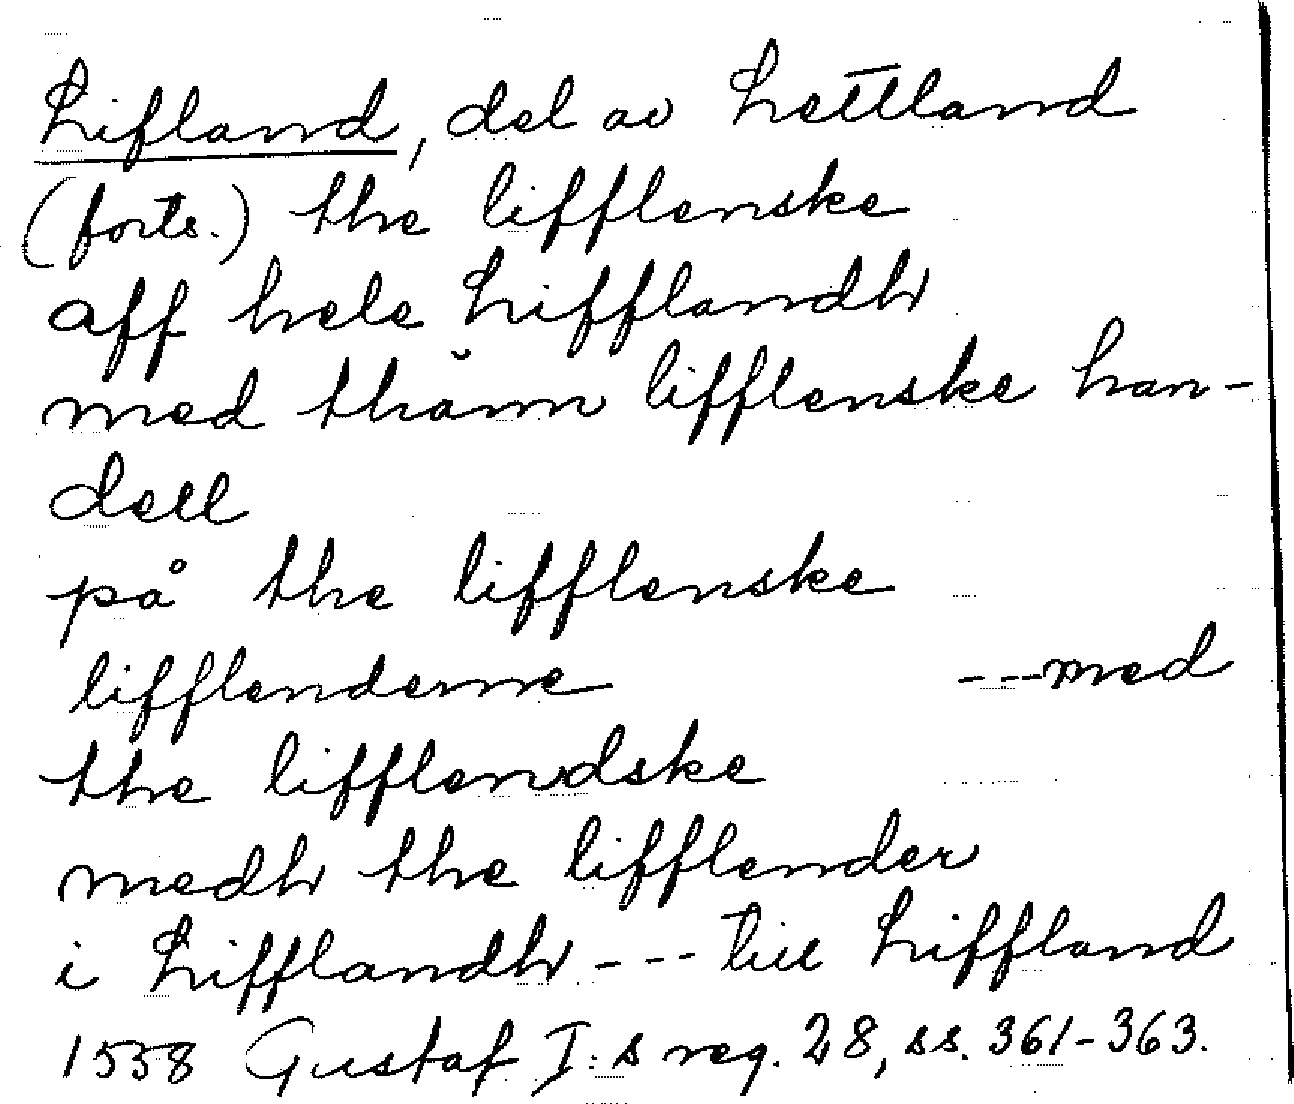 Lifland, del av Lettland
(forts.) the lifflenske
aff hele Lifflandh
med thänn lifflenske han-
dell
på the lifflenske
lifflenderne ---med
the lifflendske
medh the lifflender
i Lifflandh --- till Liffland
1558 Gustaf I:s reg. 28, ss. 361-363.